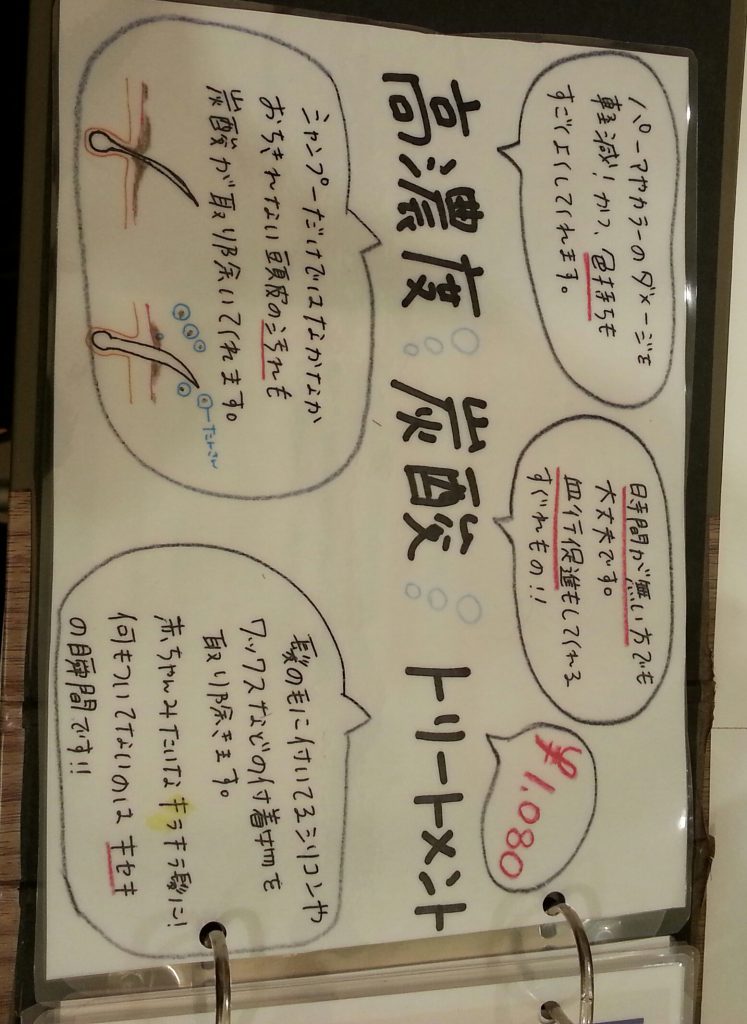 パーマやカラーのダメージを
軽減!かつ、色持ちも
すごくよくしてくれます。
時間が無い方でも
大丈夫です。
血行促進もしてくれる
すぐれもの!!
¥1,080
高濃度 炭酸 トリートメント
シャンプーだけではなかなか
おちきれない頭皮の汚れも
炭酸が取り除いてくれます。
たんさん
髪の毛に付いてるシリコンや
ワックスなどの付着物を
取り除きます。
赤ちゃんみたいなキラキラ髪に!
何もついてないのはキセキ
の瞬間です!!